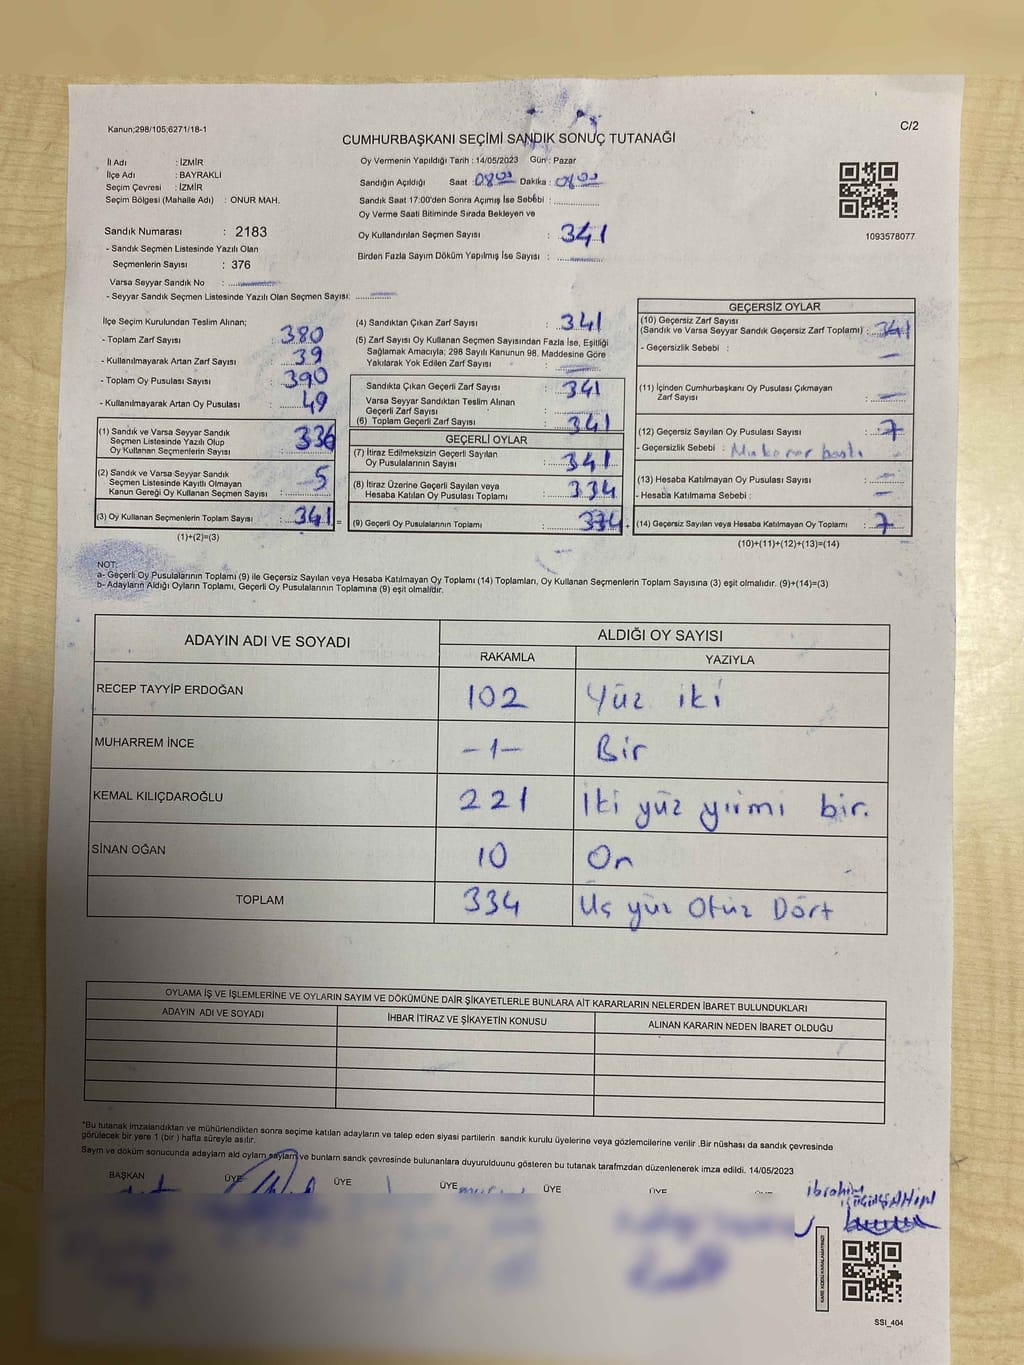 Kanun;298/105;6271/18-1
C/2
CUMHURBAŞKANI SEÇİMİ SANDIK SONUÇ TUTANAĞI
İl Adı : İZMİR
İlçe Adı : BAYRAKLI
Seçim Çevresi : İZMİR
Seçim Bölgesi (Mahalle Adı) : ONUR MAH.
Sandık Numarası : 2183
- Sandık Seçmen Listesinde Yazılı Olan
Seçmenlerin Sayısı : 376
Varsa Seyyar Sandık No :
- Seyyar Sandık Seçmen Listesinde Yazılı Olan Seçmen Sayısı:
Oy Vermenin Yapıldığı Tarih : 14/05/2023 Gün : Pazar
Sandığın Açıldığı Saat : 08 00 Dakika :
Sandık Saat 17:00'den Sonra Açımış İse Sebebi :
Oy Verme Saati Bitiminde Sırada Bekleyen ve
Oy Kullandırılan Seçmen Sayısı : 341
Birden Fazla Sayım Döküm Yapılmış İse Sayısı :
1093578077
İlçe Seçim Kurulundan Teslim Alınan;
- Toplam Zarf Sayısı : 380
- Kullanılmayarak Artan Zarf Sayısı : 39
- Toplam Oy Pusulası Sayısı : 390
- Kullanılmayarak Artan Oy Pusulası : 49
(1) Sandık ve Varsa Seyyar Sandık
Seçmen Listesinde Yazılı Olup
Oy Kullanan Seçmenlerin Sayısı : 336
(2) Sandık ve Varsa Seyyar Sandık
Seçmen Listesinde Kayıtlı Olmayan
Kanun Gereği Oy Kullanan Seçmen Sayısı : 5
(3) Oy Kullanan Seçmenlerin Toplam Sayısı : 341 =
(1)+(2)=(3)
(4) Sandıktan Çıkan Zarf Sayısı : 341
(5) Zarf Sayısı Oy Kullanan Seçmen Sayısından Fazla İse, Eşitliği
Sağlamak Amacıyla; 298 Sayılı Kanunun 98. Maddesine Göre
Yakılarak Yok Edilen Zarf Sayısı :
Sandıkta Çıkan Geçerli Zarf Sayısı : 341
Varsa Seyyar Sandıktan Teslim Alınan
Geçerli Zarf Sayısı :
(6) Toplam Geçerli Zarf Sayısı : 341
GEÇERLİ OYLAR
(7) İtiraz Edilmeksizin Geçerli Sayılan
Oy Pusulalarının Sayısı : 341
(8) İtiraz Üzerine Geçerli Sayılan veya
Hesaba Katılan Oy Pusulası Toplamı : 334
(9) Geçerli Oy Pusulalarının Toplamı : 334 +
GEÇERSİZ OYLAR
(10) Geçersiz Zarf Sayısı
(Sandık ve Varsa Seyyar Sandık Geçersiz Zarf Toplamı) : 341
- Geçersizlik Sebebi :
(11) İçinden Cumhurbaşkanı Oy Pusulası Çıkmayan
Zarf Sayısı :
(12) Geçersiz Sayılan Oy Pusulası Sayısı : 7
- Geçersizlik Sebebi :
(13) Hesaba Katılmayan Oy Pusulası Sayısı :
- Hesaba Katılmama Sebebi :
(14) Geçersiz Sayılan veya Hesaba Katılmayan Oy Toplamı : 7
(10)+(11)+(12)+(13)=(14)
NOT:
a- Geçerli Oy Pusulalarının Toplamı (9) ile Geçersiz Sayılan veya Hesaba Katılmayan Oy Toplamı (14) Toplamları, Oy Kullanan Seçmenlerin Toplam Sayısına (3) eşit olmalıdır. (9)+(14)=(3)
b- Adayların Aldığı Oyların Toplamı, Geçerli Oy Pusulalarının Toplamına (9) eşit olmalıdır.
ADAYIN ADI VE SOYADI
ALDIĞI OY SAYISI
RAKAMLA YAZIYLA
RECEP TAYYİP ERDOĞAN 102 Yüz iki
MUHARREM İNCE -1- Bir
KEMAL KILIÇDAROĞLU 221 İki yüz yirmi bir.
SİNAN OĞAN 10 On
TOPLAM 334 Üç yüz Otuz Dört
OYLAMA İŞ VE İŞLEMLERİNE VE OYLARIN SAYIM VE DÖKÜMÜNE DAİR ŞİKAYETLERLE BUNLARA AİT KARARLARIN NELERDEN İBARET BULUNDUKLARI
ADAYIN ADI VE SOYADI İHBAR İTİRAZ VE ŞİKAYETİN KONUSU ALINAN KARARIN NEDEN İBARET OLDUĞU
"Bu tutanak imzalandıktan ve mühürlendikten sonra seçime katılan adayların ve talep eden siyasi partilerin sandık kurulu üyelerine veya gözlemcilerine verilir .Bir nüshası da sandık çevresinde
görülecek bir yere 1 (bir ) hafta süreyle asılır.
Saym ve döküm sonucunda adaylam ald oylam saylam ve bunlarn sandk çevresinde bulunanlara duyurulduunu gösteren bu tutanak tarafmzdan düzenlenerek imza edildi. 14/05/2023
BAŞKAN ÜYE ÜYE ÜYE ÜYE ÜYE
ibrahim
KARE KODU KARALAMAYINIZ!
SSI_404